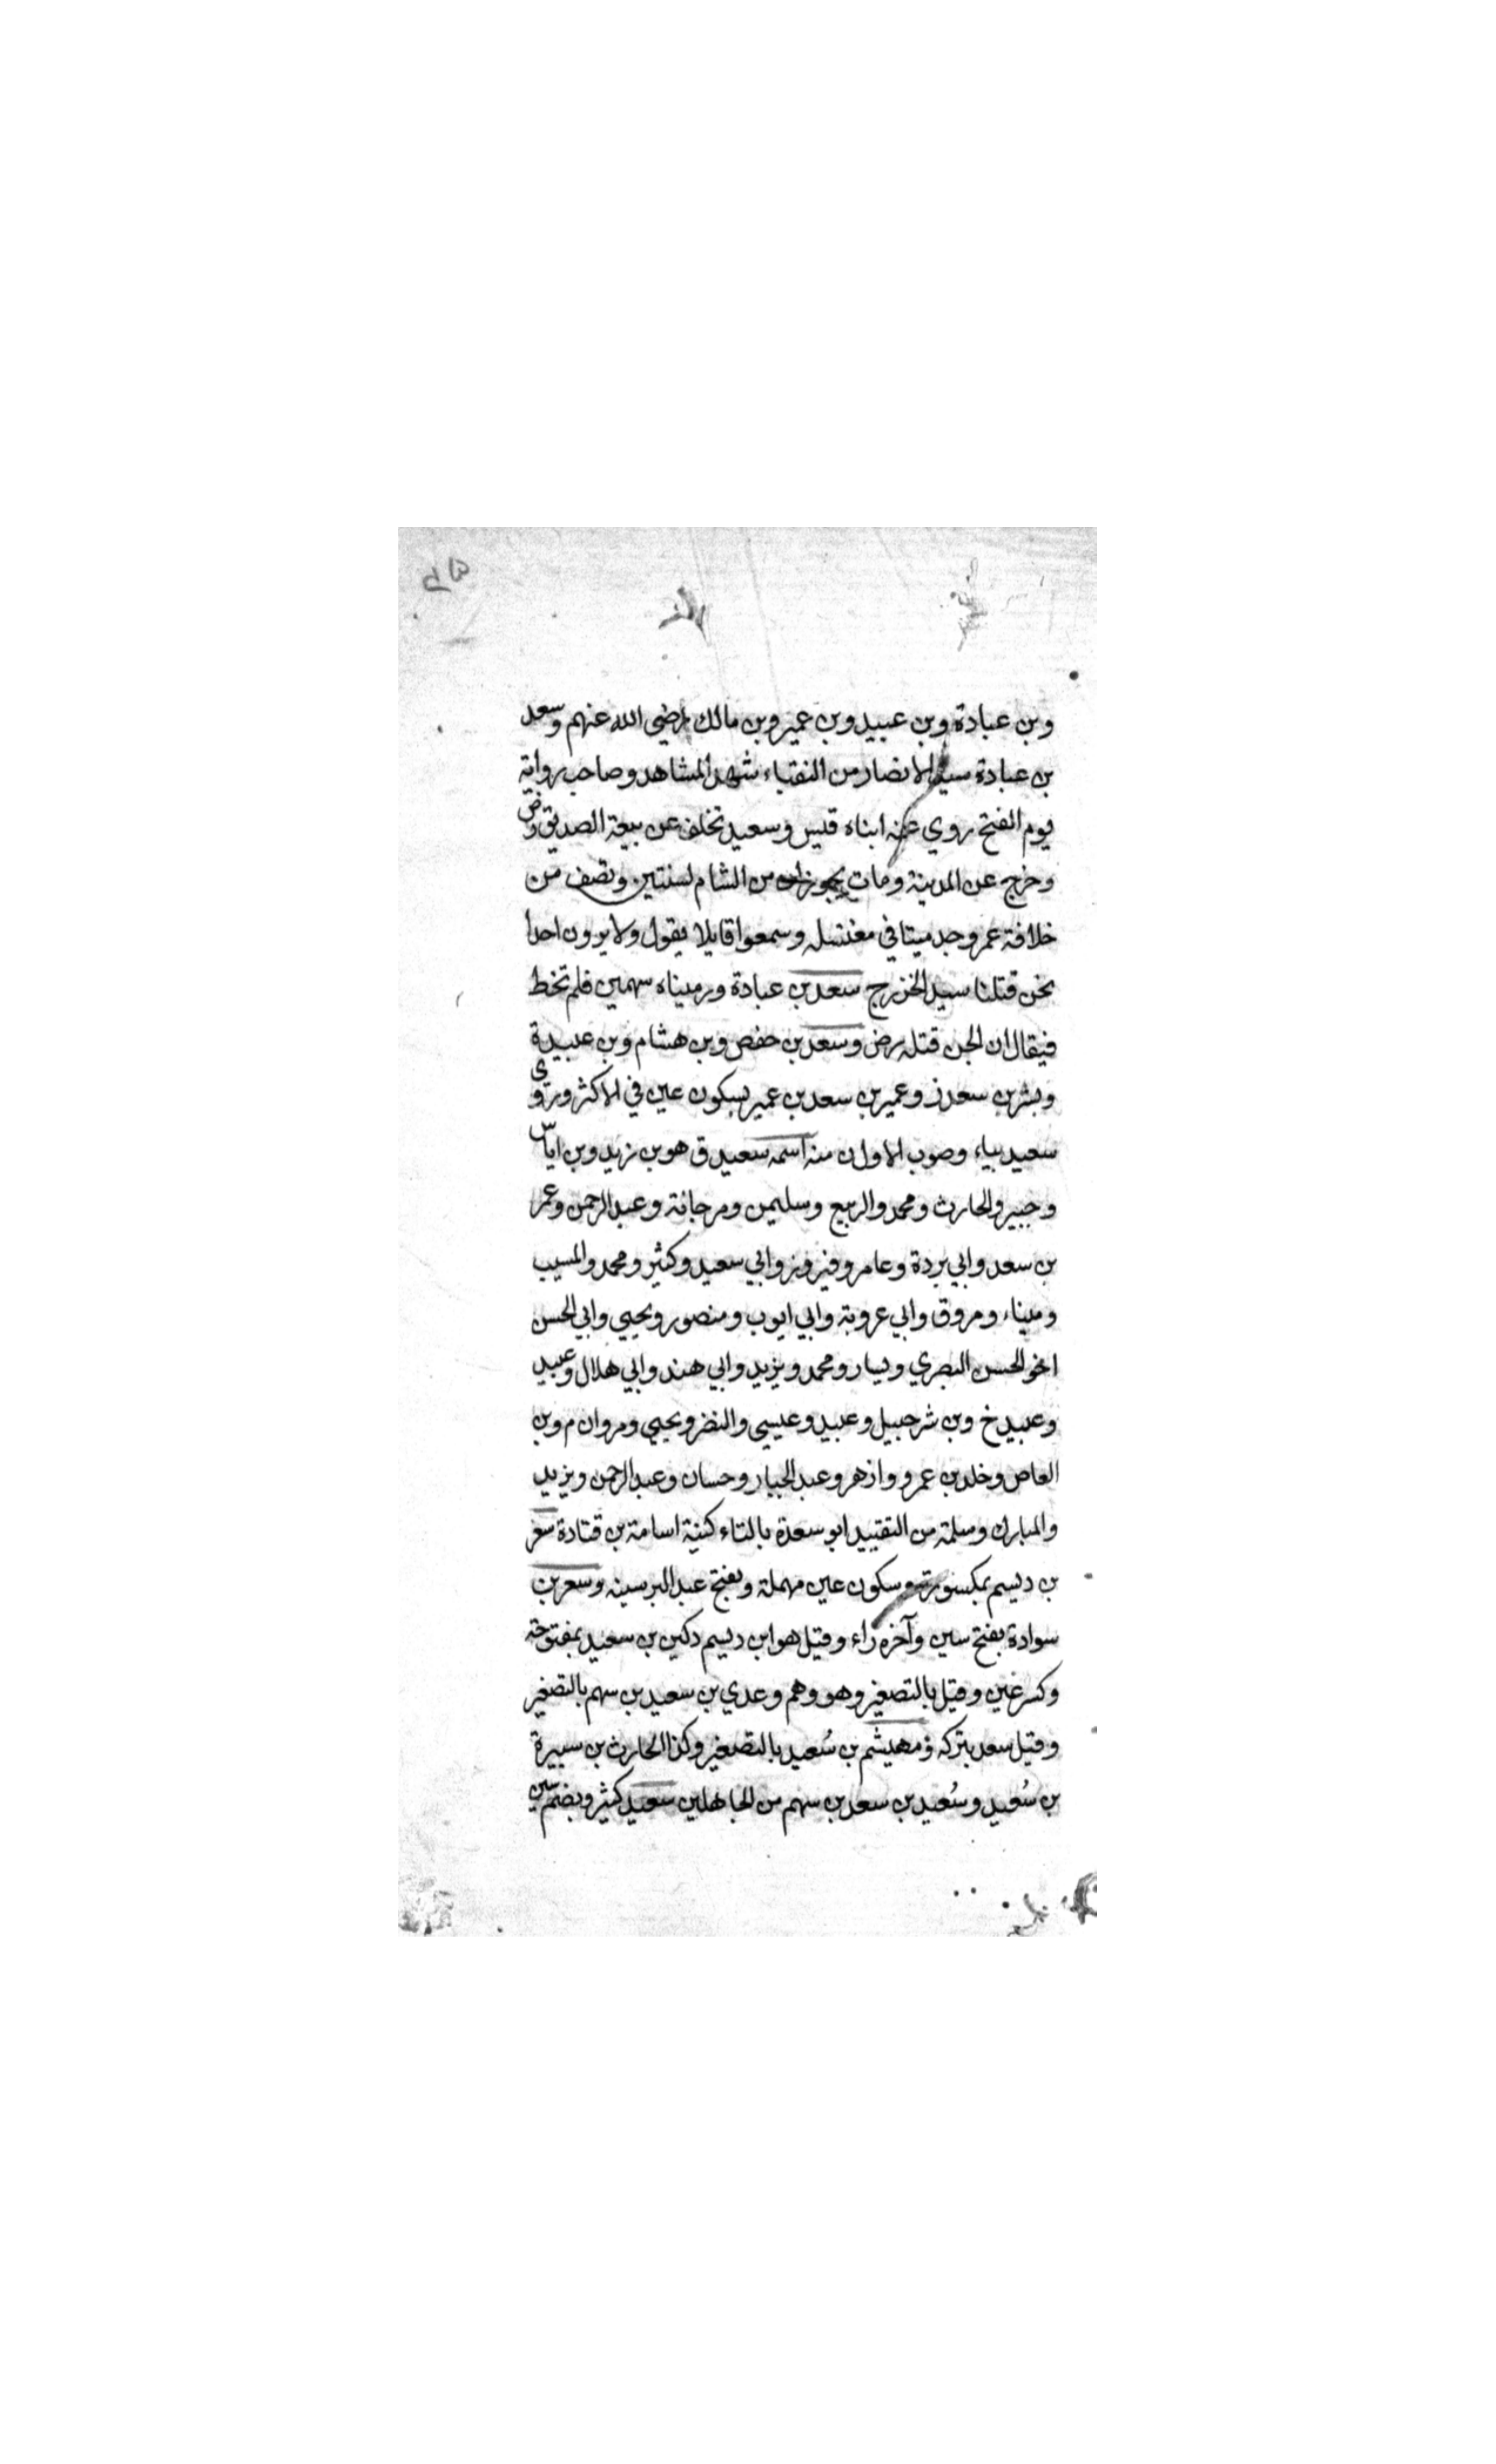 وبن عبادة وبن عبيد وبن عمير وبن مالك رضي الله عنهم وسعد
بن عبادة سيد الانصار من النقباء شهد المشاهد وصاحب رواية
يوم الفتح روي عنه ابناه قيس وسعيد تخلف عن بيعة الصديق رض
وخرج عن المدينة ومات بحوران من الشام لسنتين ونصف من
خلافة عمر وجد ميتا في مغتسله وسمعوا قايلا يقول ولا يرون احدا
نحن قتلنا سيد الخزرج سعد بن عبادة ورميناه سهمين فلم تخط
فيقال ان الجن قتله رض وسعد بن حفص وبن هشام وبن عبيدة
وبشر بن سعد ن وعمير بن سعد بن عمير بسكون عين في الاكثر وروى
سعيد بياء وصوب الاول ن منه اسمه سعيد ق هو بن زيد وبن اياس
وجبير والحارث ومحمد والربيع وسليمن ومرجانة وعبد الرحمن وعمر
بن سعد وابي بردة وعامر وفيروز وابي سعيد وكثير ومحمد والمسيب
وميناء ومروق وابي عروبة وابي ايوب ومنصور ويحيي وابي الحسن
اخو الحسن البصري ويسار ومحمد ويزيد وابي هند وابي هلال وعبيد
وعبيد خ وبن شرحبيل وعبيد وعيسي والنضر ويحيي ومروان م وبن
العاص وخلد بن عمرو وازهر وعبد الجبار وحسان وعبد الرحمن ويزيد
والمبارك وسلمة من التقييد ابو سعدة بالتاء كنية اسامة بن قتادة سعر
بن ديسم بمكسورة وسكون عين مهملة وبفتح عبد البر سينه وسعر بن
سوادة بفتح سين وآخره راء وقيل هو ابن ديسم دكين بن سعيد بمفتوحة
وكسر عين وقيل بالتصغير وهو وهم وعدي بن سعيد بن سهم بالتصغير
وقيل سعد بتركه ومهيشم بن سُعيد بالتصغير وكذا الحارث بن سبيرة
بن سُعيد وسُعيد بن سعد بن سهم من الجاهلين سعيد كثير وبضم سين